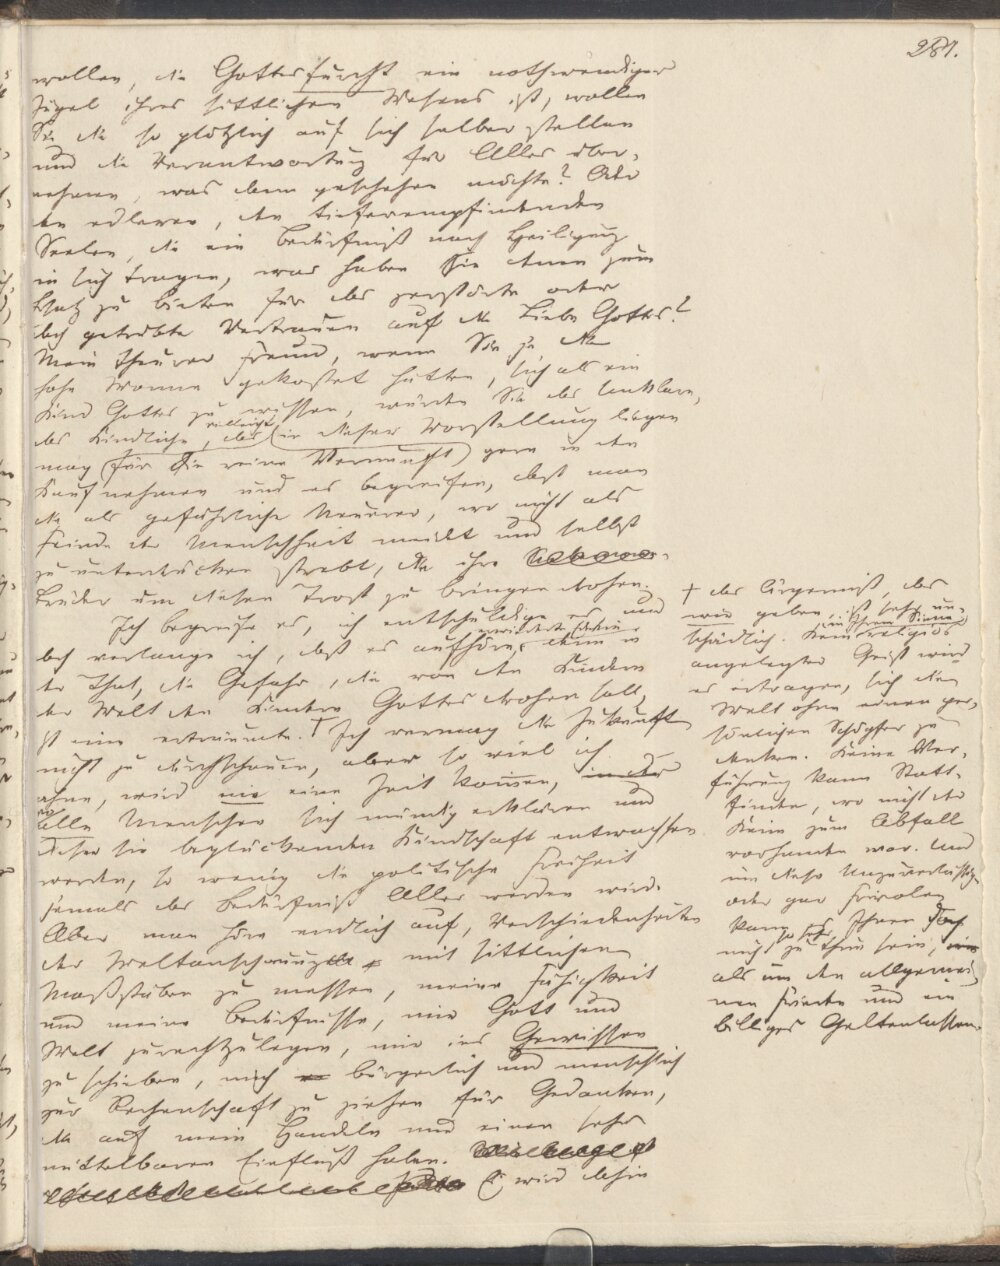 281.
wollen, die Gottesfurcht ein nothwendiger
Zügel ihres sittlichen Wesens ist, wollen
Sie die so plötzlich auf sich selber stellen
und die Verantwortung für Alles über-
nehmen, was dann geschehen möchte? Und
den edleren, den tieferempfindenden
Seelen, die ein Bedürfniß nach Heiligung
in sich tragen, was haben Sie denen zum
Ersatz zu bieten für das zerstörte oder
doch getrübte Vertrauen auf die Liebe Gottes?
Mein theurer Freund, wenn Sie je die
hohe Wonne gekostet hätten, sich als ein
Kind Gottes zu wissen, würden Sie das Unklare,
das Kindliche, das vielleicht in dieser Vorstellung liegen
mag (für die reine Vernunft) gern in den
Kauf nehmen und es begreifen, daß man
die als gefährliche Neuerer, wo nicht als
Feinde der Menschheit meidet und selbst
zu unterdrücken strebt, die ihre
Brüder um diesen Trost zu bringen drohen.
Ich begreife es, ich entschuldige es, und
doch verlange ich, daß es aufhöre, denn in
der That, die Gefahr, die von den Kindern
der Welt den Kindern Gottes drohen soll,
ist eine erträumte.† Ich vermag die Zukunft
nicht zu durchschauen, aber so viel ich
ahne, wird nie eine Zeit kommen, in der
alle Menschen sich mündig erklären und
dieser sie beglückenden Kindschaft entwachsen
werden, so wenig die politische Freiheit
jemals das Bedürfniß Aller werden wird.
Aber man höre endlich auf, Verschiedenheiten
der Weltanschauung mit sittlichen
Maßstäben zu messen, meine Fähigkeit
und meine Bedürfnisse, mir Gott und
Welt zurechtzulegen, mir ins Gewissen
zu schieben, mich bürgerlich und menschlich
zur Rechenschaft zu ziehen für Gedanken,
die auf mein Handeln nur einen sehr
mittelbaren Einfluß haben.
Es wird dahin
† das Ärgerniß, das
wir geben, ist sehr un-
schädlich. Kein in Ihrem Sinne religiös
angelegter Geist wird
es ertragen, sich die
Welt ohne einen per-
sönlichen Schöpfer zu
denken. Keine Ver-
führung kann Statt-
finden, wo nicht der
Keim zum Abfall
vorhanden war. Und
um diese Unzuverlässigen
oder gar Frivolen
kann Ihnen doch
nicht so sehr zu thun sein,
als um den allgemei-
nen Frieden und ein
billiges Geltenlassen.